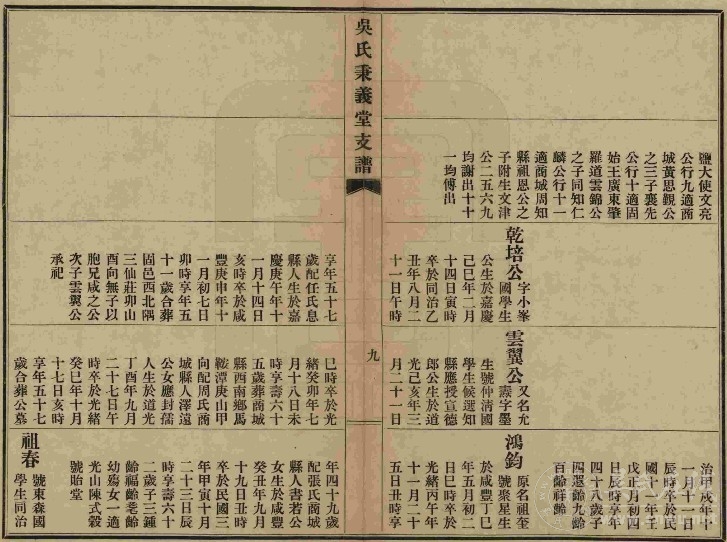 鹽大使文亮
公行九適商
城黃思觀公
之三子襄先
公行十適固
始王廣東肇
羅道雲錦公
之子同知仁
麟公行十一
適商城周知
縣祖恩公之
子附生文津
公二五六九
均謝出十十
一均傅出
乾培公 字小峯
國學生
公生於嘉慶
己巳年二月
十四日寅時
卒於同治乙
丑年八月二
十一日午時
雲翼公 又名允
燾字墨
生號仲清國
學生候選知
縣應授宣德
郎公生於道
光己亥年三
月二十一日
治甲戌年十
一月十一日
辰時卒於民
國十一年壬
戌正月初四
日辰時享年
四十八歲子
四選餘九餘
百餘祥餘
鴻鈞 原名祖奎
號聚星生
於咸豐丁巳
年五月初二
日巳時卒於
光緒丙午年
十一月二十
五日丑時享
吳氏秉義堂支譜
九
享年五十七
歲配任氏息
縣人生於嘉
慶庚午年十
一月十四日
亥時卒於咸
豐庚申年十
一月初七日
卯時享年五
十一歲合葬
固邑西北隅
三仙莊卯山
酉向無子以
胞兄咸之公
次子雲翼公
承祀
巳時卒於光
緒癸卯年七
月十八日未
時享壽六十
五歲葬商城
縣西南鄉馬
鞍潭庚山甲
向配周氏商
城縣人澤遠
公女應封儒
人生於道光
丁酉年九月
二十七日午
時卒於光緒
癸巳年十月
十七日亥時
享年五十七
歲合葬公墓
年四十九歲
配張氏商城
縣人書若公
女生於咸豐
癸丑年九月
十九日丑時
卒於民國三
年甲寅十月
二十三日辰
時享壽六十
二歲子三鍾
餘福餘耄餘
幼殤女一適
光山陳式穀
號貽堂
祖春 號東森國
學生同治